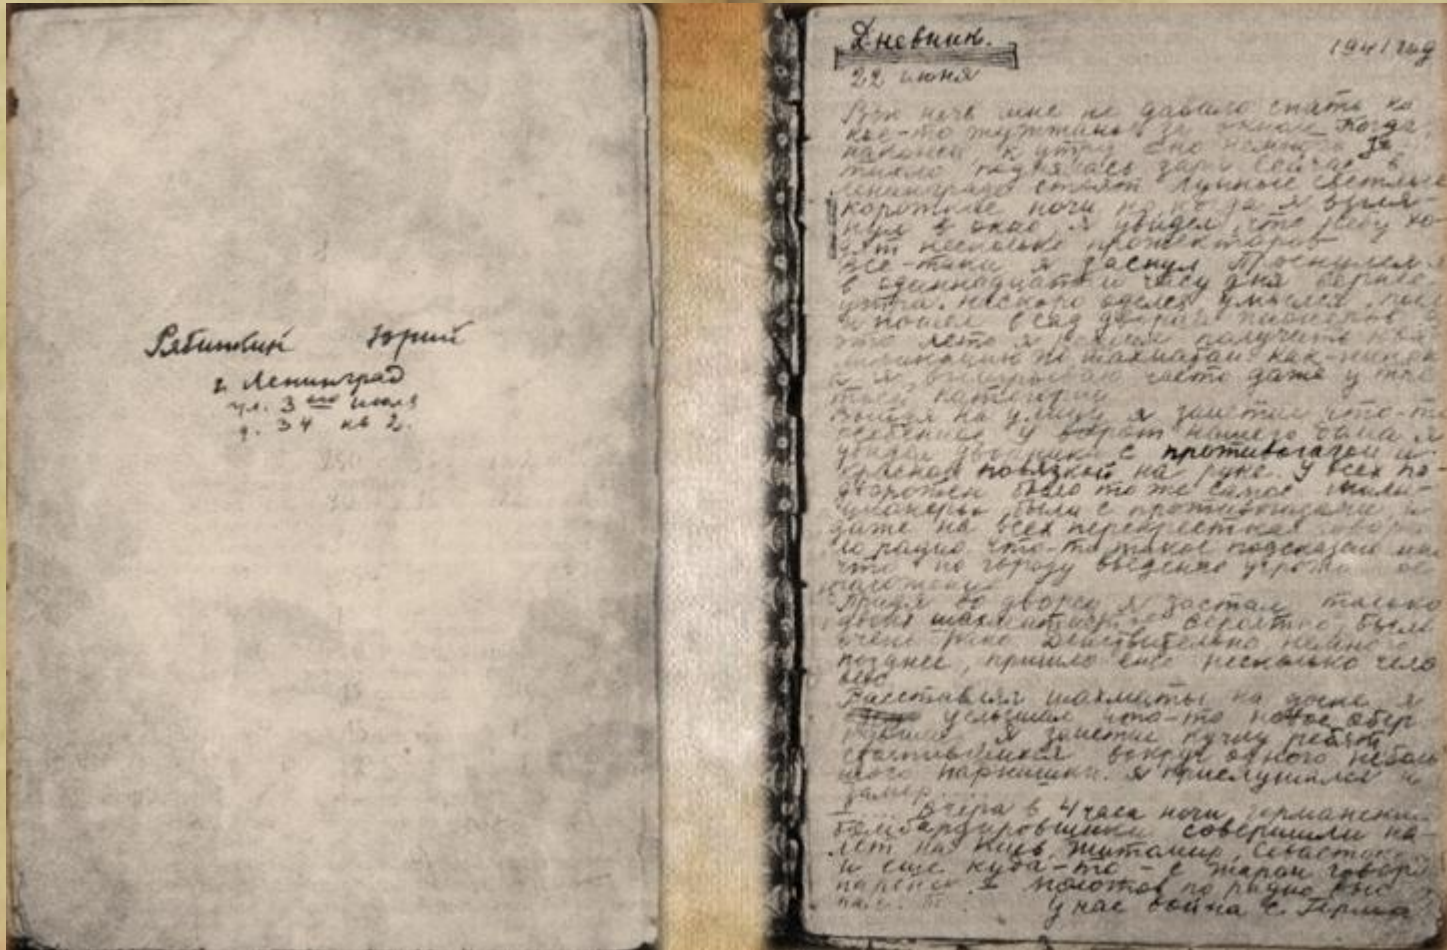 Рябинкин Юрий
г. Ленинград
ул. 3его июля
д. 34 кв 2.
Дневник.
1941 год
22 июня
Всю ночь мне не давало спать ка
кое-то жужжанье за окном Когда
наконец к утру оно немного за
тихло поднялась заря Сейчас в
Ленинграде стоят лунные светлые
короткие ночи но когда я выгля-
нул в окно я увидел, что небу хо-
дят несколько прожекторов
Все-таки я заснул Проснулся я
в одиннадцатом часу дня вернее
утра. Наскоро оделся умылся, поел
и пошел в сад дворца пионеров В
это лето я решил получить ква
лификацию по шахматам как-никак
я выигрываю часто даже у тре
тьей категории
Выйдя на улицу я заметил что-то
особенное У ворот нашего дома я
увидел дворника с противогазом и
красной повязкой на руке. У всех по-
дворотен было то же самое Мили-
ционеры были с противогазами, и
даже на всех перекрестках говори
ло радио Что-то такое подсказало мне
что по городу введено угрожаемое
положение
Придя во дворец я застал только
двоих шахматистов вероятно было
очень рано Действительно немного
позднее, пришло еще несколько чело
век
Расставляя шахматы на доске я
услышал что-то новое обер
нувшись я заметил кучку ребят
столпившихся вокруг одного неболь
шого парнишки. Я прислушался и
замер....
- ... Вчера в 4 часа ночи германские
бомбардировщики совершили на-
лет на Киев, Житомир, Севастополь
и еще куда-то - с жаром говорил
паренек. - Молотов по радио выс
у нас война с Герма